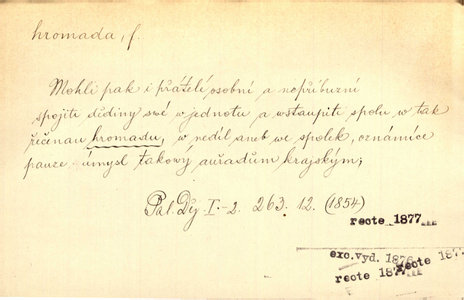 hromada, f.
Mohli pak i přátelé osobné a nepříbuzní
spojiti dědiny své w jednotu a wstaupiti spolu w tak
řečenau hromadu, w neděl aneb we spolek, oznámíce
pauze úmysl takowý auřadům krajským;
Pal. Děj. I-2. 263. 12. (1854)
recte 1877
exc.vyd. 1876
recte 187
recte 187